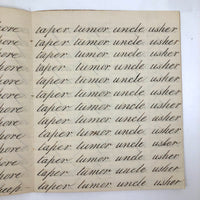 taper tumor uncle usher
taper tumor uncle usher
taper tumor uncle usher
taper tumor uncle usher
taper tumor uncle usher
taper tumor uncle usher
taper tumor uncle usher
taper tumor uncle usher
taper tumor uncle usher
taper tumor uncle usher
taper tumor uncle usher
taper tumor uncle usher
taper tumor uncle usher